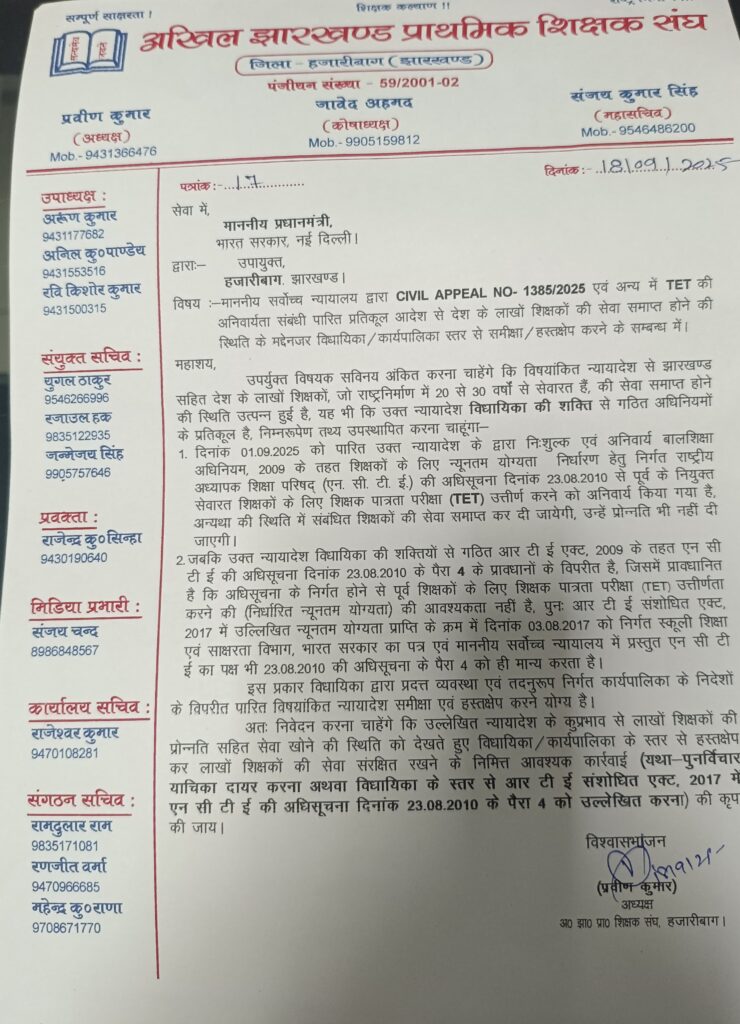 सम्पूर्ण साक्षरता !
शिक्षक कल्याण !!
अखिल झारखण्ड प्राथमिक शिक्षक संघ
जिला - हजारीबाग ( झारखण्ड )
पंजीयन संख्या - 59/2001-02
प्रवीण कुमार
(अध्यक्ष)
Mob.- 9431366476
जावेद अहमद
(कोषाध्यक्ष)
Mob.- 9905159812
संजय कुमार सिंह
(महासचिव)
Mob.- 9546486200
पत्रांक:-...17............
दिनांक:- 18/09/2025
उपाध्यक्ष :
अरूण कुमार
9431177682
अनिल कु०पाण्डेय
9431553516
रवि किशोर कुमार
9431500315
संयुक्त सचिव :
युगल ठाकुर
9546266996
रजाउल हक
9835122935
जन्मेजय सिंह
9905757646
प्रवक्ता :
राजेन्द्र कु०सिन्हा
9430190640
मिडिया प्रभारी :
संजय चन्द
8986848567
कार्यालय सचिव :
राजेश्वर कुमार
9470108281
संगठन सचिव :
रामदुलार राम
9835171081
रणजीत वर्मा
9470966685
महेन्द्र कु०राणा
9708671770
सेवा में,
माननीय प्रधानमंत्री,
भारत सरकार, नई दिल्ली।
द्वाराः– उपायुक्त,
हजारीबाग. झारखण्ड।
विषय :–माननीय सर्वोच्च न्यायालय द्वारा CIVIL APPEAL NO- 1385/2025 एवं अन्य में TET की
अनिवार्यता संबंधी पारित प्रतिकूल आदेश से देश के लाखों शिक्षकों की सेवा समाप्त होने की
स्थिति के मद्देनजर विधायिका/कार्यपालिका स्तर से समीक्षा/हस्तक्षेप करने के सम्बन्ध में।
महाशय,
उपर्युक्त विषयक सविनय अंकित करना चाहेंगे कि विषयांकित न्यायादेश से झारखण्ड
सहित देश के लाखों शिक्षकों, जो राष्ट्रनिर्माण में 20 से 30 वर्षों से सेवारत हैं, की सेवा समाप्त होने
की स्थिति उत्पन्न हुई है, यह भी कि उक्त न्यायादेश विधायिका की शक्ति से गठित अधिनियमों
के प्रतिकूल है, निम्नरूपेण तथ्य उपस्थापित करना चाहूंगा–
1. दिनांक 01.09.2025 को पारित उक्त न्यायादेश के द्वारा निःशुल्क एवं अनिवार्य बालशिक्षा
अधिनियम, 2009 के तहत शिक्षकों के लिए न्यूनतम योग्यता निर्धारण हेतु निर्गत राष्ट्रीय
अध्यापक शिक्षा परिषद् (एन. सी. टी. ई.) की अधिसूचना दिनांक 23.08.2010 से पूर्व के नियुक्त
सेवारत शिक्षकों के लिए शिक्षक पात्रता परीक्षा (TET) उत्तीर्ण करने को अनिवार्य किया गया है,
अन्यथा की स्थिति में संबंधित शिक्षकों की सेवा समाप्त कर दी जायेगी, उन्हें प्रोन्नति भी नहीं दी
जाएगी।
2. जबकि उक्त न्यायादेश विधायिका की शक्तियों से गठित आर टी ई एक्ट, 2009 के तहत एन सी
टी ई की अधिसूचना दिनांक 23.08.2010 के पैरा 4 के प्रावधानों के विपरीत है, जिसमें प्रावधानित
है कि अधिसूचना के निर्गत होने से पूर्व शिक्षकों के लिए शिक्षक पात्रता परीक्षा (TET) उत्तीर्णता
करने की (निर्धारित न्यूनतम योग्यता) की आवश्यकता नहीं है, पुनः आर टी ई संशोधित एक्ट,
2017 में उल्लिखित न्यूनतम योग्यता प्राप्ति के क्रम में दिनांक 03.08.2017 को निर्गत स्कूली शिक्षा
एवं साक्षरता विभाग, भारत सरकार का पत्र एवं माननीय सर्वोच्च न्यायालय में प्रस्तुत एन सी टी
ई का पक्ष भी 23.08.2010 की अधिसूचना के पैरा 4 को ही मान्य करता है।
इस प्रकार विधायिका द्वारा प्रदत्त व्यवस्था एवं तदनुरूप निर्गत कार्यपालिका के निदेशों
के विपरीत पारित विषयांकित न्यायादेश समीक्षा एवं हस्तक्षेप करने योग्य है।
अतः निवेदन करना चाहेंगे कि उल्लेखित न्यायादेश के कुप्रभाव से लाखों शिक्षकों की
प्रोन्नति सहित सेवा खोने की स्थिति को देखते हुए विधायिका/कार्यपालिका के स्तर से हस्तक्षेप
कर लाखों शिक्षकों की सेवा संरक्षित रखने के निमित्त आवश्यक कार्रवाई (यथा–पुनर्विचार
याचिका दायर करना अथवा विधायिका के स्तर से आर टी ई संशोधित एक्ट, 2017 में
एन सी टी ई की अधिसूचना दिनांक 23.08.2010 के पैरा 4 को उल्लेखित करना) की कृप
की जाय।
विश्वासभाजन
(प्रवीण कुमार)
अध्यक्ष
अ० झा० प्रा० शिक्षक संघ, हजारीबाग।